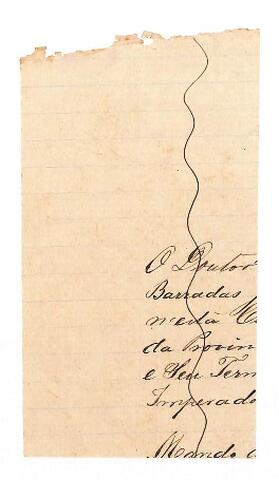 O Doutor
Barradas
n'esta
da Provin
e Seu Term
Imperado
Mando